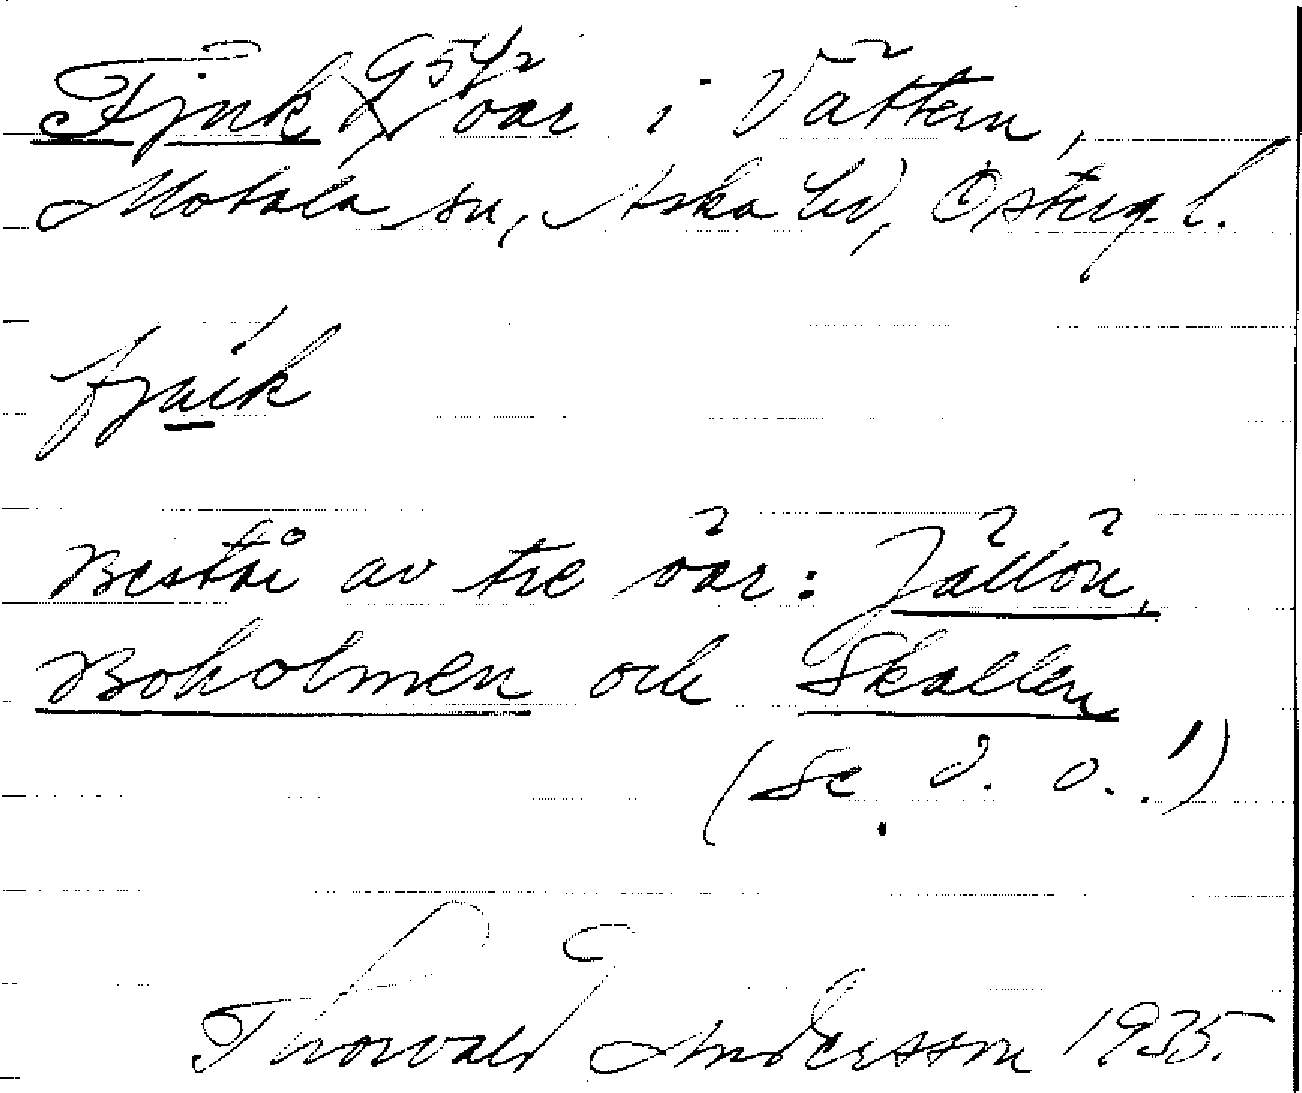 Fjuk G54/2 öar i Vättern,
Motala sn, Aska hd, Österg. l.
fjuk
Består av tre öar: Jällön,
Boholmen och Skallen
(Se d. o.!)
Thorvald Andersson 1935.